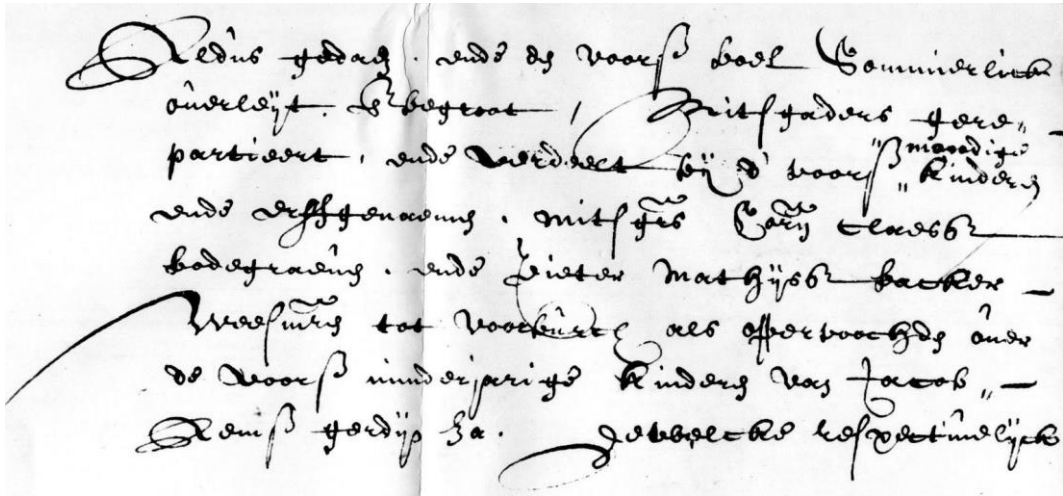 Aldus gedaen ende de voorß boel Sommierlick
overleyt & begroot / Mitsgaders gere„
partieert, ende verdeelt by d' voorß „ mondige „ kinderen
ende erffgenaemen, mitsgrs Corn Claessz
bodegraven, ende Pieter Mathyssz backer
Weesmrs tot Voorburch als oppervoochden over
de voorß minderjarige kinderen van Jacob „
gerdyx za. Dewelcke respectivelyck